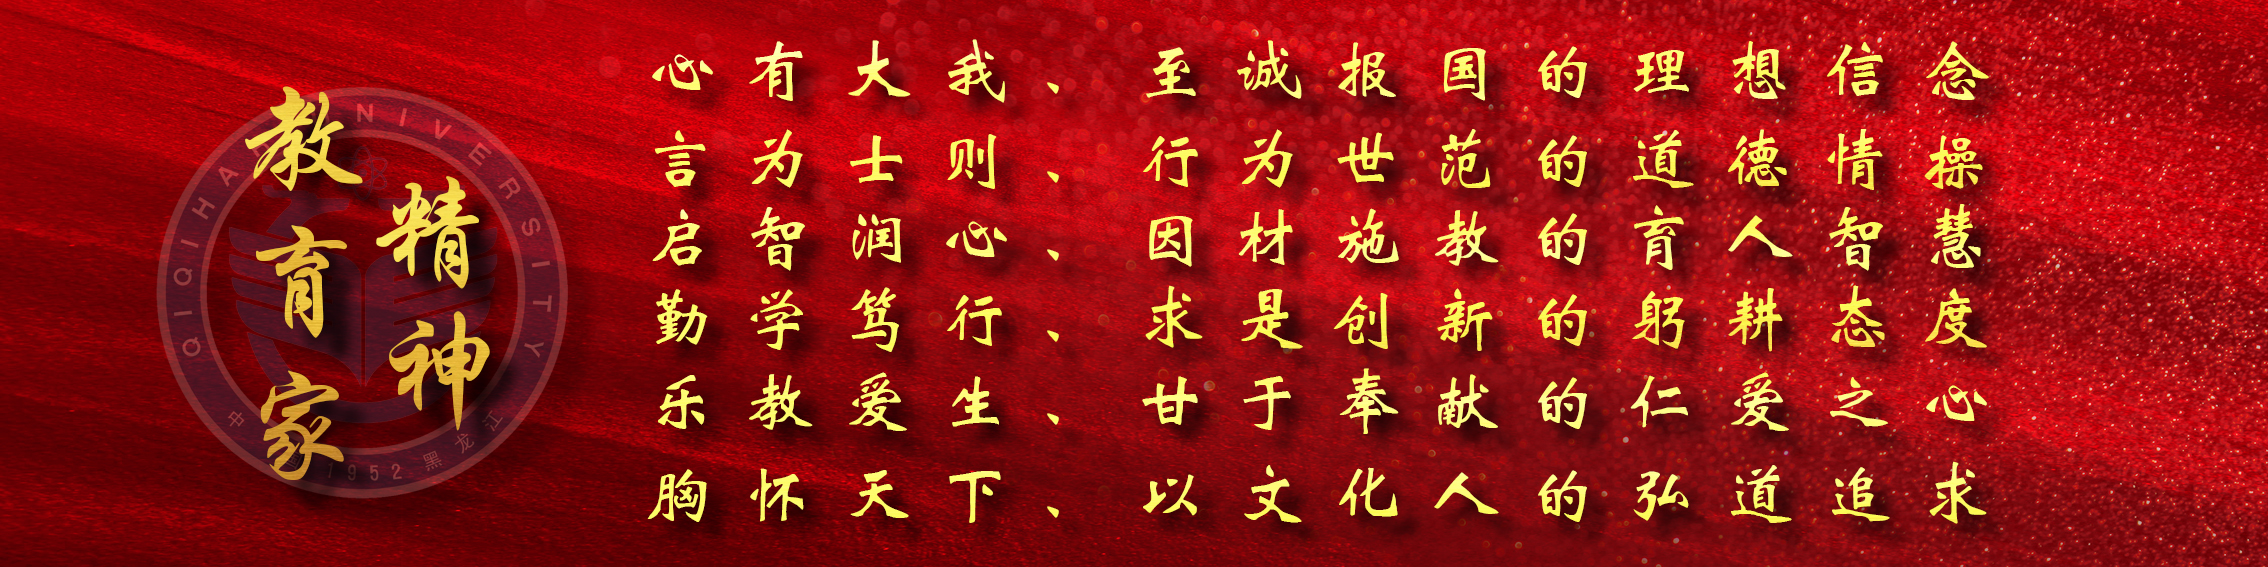 教育家
精神
心有大我、至诚报国的理想信念
言为士则、行为世范的道德情操
启智润心、因材施教的育人智慧
勤学笃行、求是创新的躬耕态度
乐教爱生、甘于奉献的仁爱之心
胸怀天下、以文化人的弘道追求
QIQIHA NIVERSITY
中 1952 黑龙江